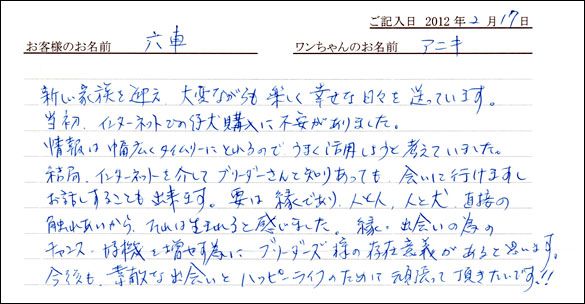 ご記入日 2012年2月17日
お客様のお名前 六車 ワンちゃんのお名前 アニキ
新しい家族を迎え 大変ながらも 楽しく 幸せな日々を 送っています。
当初、インターネットでの仔犬購入に不安がありました。
情報は 幅広くタイムリーにとれるので うまく活用しようと 考えていました。
結局、インターネットを介して ブリーダーさんと知りあっても、会いに行けますし
お話しすることも 出来ます。 要は 縁であり、人と人、人と犬、直接の
触れあいから、それは生まれると感じました。 縁・出会いの為の
チャンス・好機を増やす為に ブリーダーズ様の存在意義があると思います。
今後も、素敵な出会いと ハッピーライフのために 頑張って頂きたいです!!